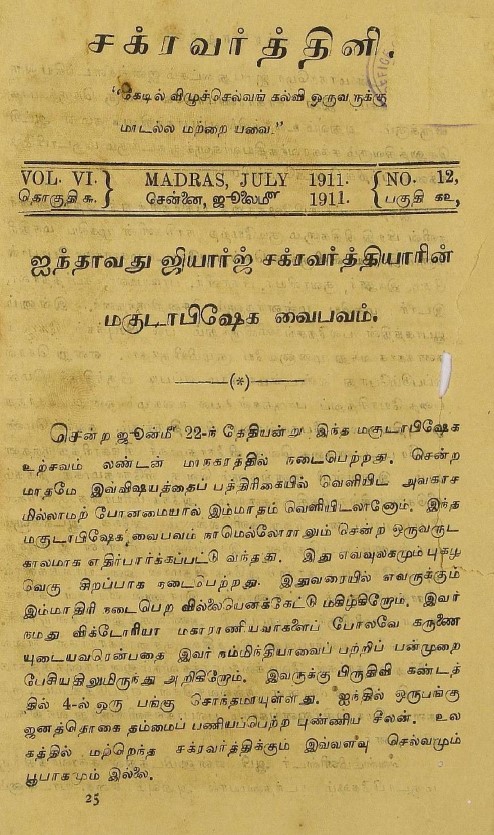 சக்ரவர்த்தினி.
"கேடில் விழுச்செல்வங் கல்வி ஒருவருக்கு
மாடல்ல மற்றை யவை."
VOL. VI. } MADRAS, JULY 1911. { NO. 12,
தொகுதி சு. } சென்னை, ஜூலைமீ 1911. { பகுதி கஉ,
ஐந்தாவது ஜியார்ஜ் சக்ரவர்த்தியாரின்
மகுடாபிஷேக வைபவம்.
—(*)—
சென்ற ஜூன்மீ 22-ந் தேதியன்று இந்த மகுடாபிஷேக
உற்சவம் லண்டன் மாநகரத்தில் நடைபெற்றது. சென்ற
மாதமே இவ்விஷயத்தைப் பத்திரிகையில் வெளியிட அவகாச
மில்லாமற் போனமையால் இம்மாதம் வெளியிடலானோம். இந்த
மகுடாபிஷேக வைபவம் நாமெல்லோராலும் சென்ற ஒருவருட
காலமாக எதிர்பார்க்கப்பட்டு வந்தது. இது எவ்வுலகமும் புகழ
வெகு சிறப்பாக நடைபெற்றது. இதுவரையில் எவருக்கும்
இம்மாதிரி நடைபெற வில்லையெனக்கேட்டு மகிழ்கிறோம். இவர்
நமது விக்டோரியா மகாராணியவர்களைப் போலவே கருணை
யுடையவரென்பதை இவர் நம்மிந்தியாவைப் பற்றிப் பன்முறை
பேசியதிலுமிருந்து அறிகிறோம். இவருக்கு பிருதிவி கண்டத்
தில் 4-ல் ஒரு பங்கு சொந்தமாயுள்ளது. ஐந்தில் ஒருபங்கு
ஜனத்தொகை தம்மைப் பணியப்பெற்ற புண்ணிய சீலன். உல
கத்தில் மற்றெந்த சக்ரவர்த்திக்கும் இவ்வளவு செல்வமும்
பூபாகமும் இல்லை.
25